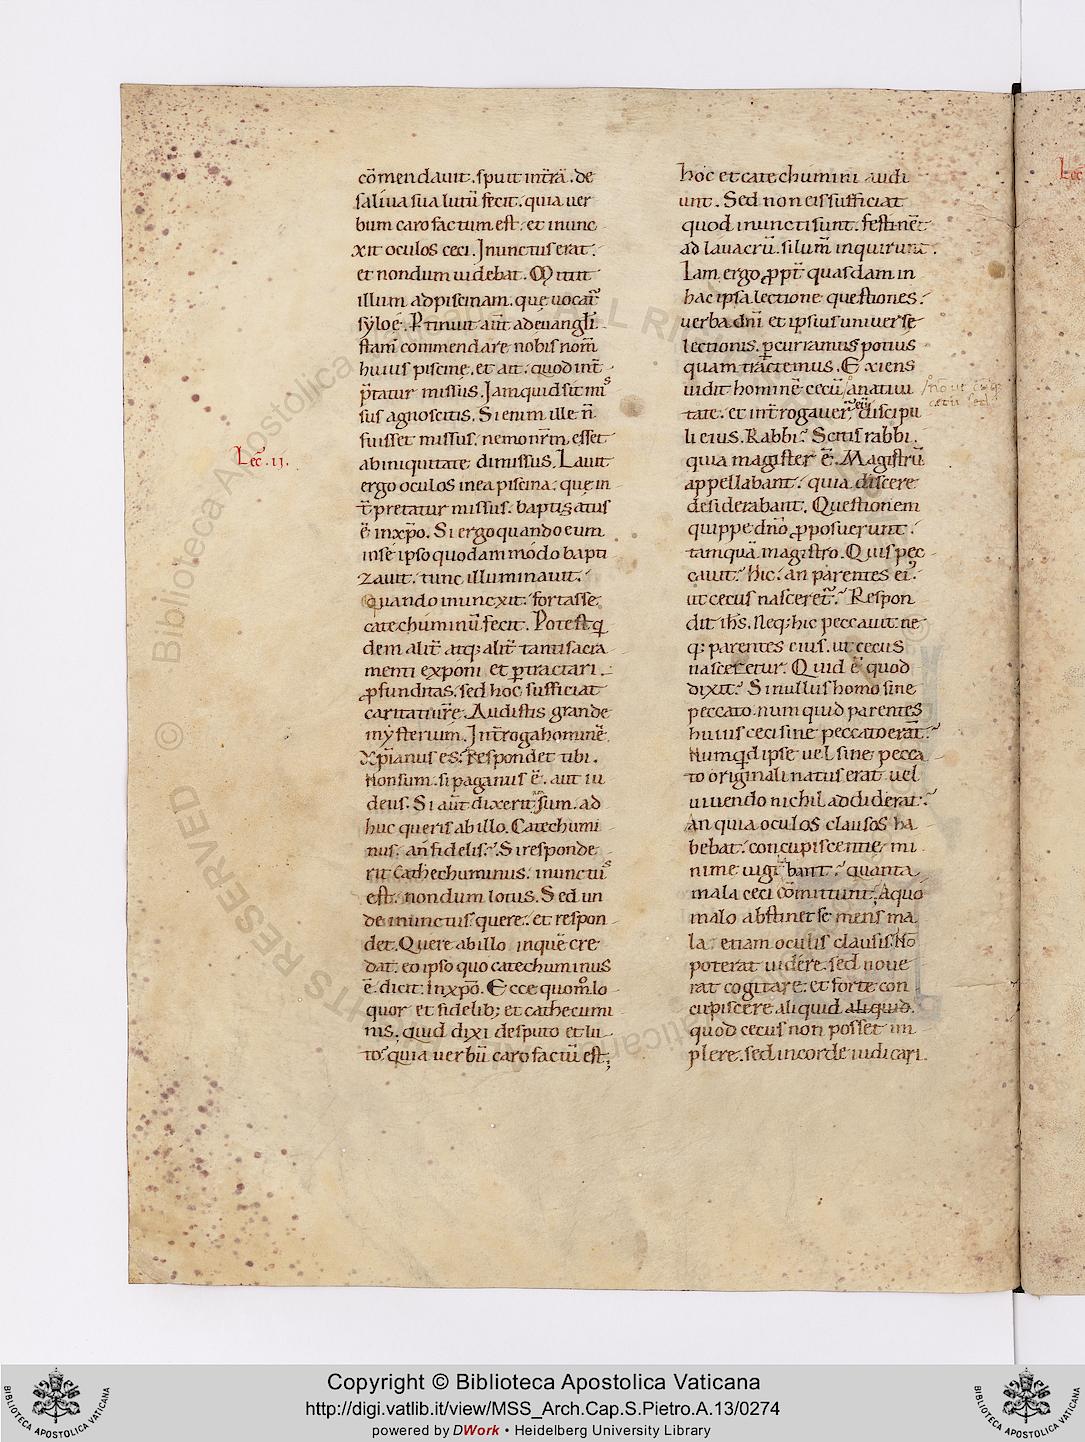 cōmendauit. spuit int̄rā. de
saliua sua lutū fecit. quia uer
bum caro factum est. et inunc
xit oculos ceci. Inunctus erat.
et nondum uidebat. Mittit
illum ad piscinam. quę uocat̄
syloę. Ptinuit aūt ad euangli
stam̄ commendare nobis nom̄
huius piscinę. et ait. quod int̄
p̄tatur missus. Iam quid sit mis
sus agnoscitis. Si enim ille n̄
fuisset missus. nemo nrm̄ esset
ab iniquitate dimissus. Lauit
Lec̄. II.
ergo oculos in ea piscina. quę in
t̄pretatur missus. baptizatus
ē in xp̄o. Si ergo quando eum
in se ipso quodammodo bapti
zauit. tunc illuminauit.
quando inunxit. fortasse
catechuminū fecit. Potest q
dem alit̄ atq; alit̄ tanti sacra
menti exponi et ptractari
ꝓfunditas. sed hoc sufficiat
caritati ur̄e. Audistis grande
mysterium. Int̄roga hominē
Xp̄ianus es. Respondet tibi.
Non sum. si paganus ē. aut iu
deus. Si aūt dixerit sum. ad
huc queris ab illo. Catechumi
nus. an fidelis. Si responde
rit Cathechuminus. inunctus
est. nondum lotus. Sed un
de inunctus. quere. et respon
det. Quere ab illo in quē cre
dat. eo ipso quo catechuminus
ē. dicit. in xp̄o. Ecce quom̊ lo
quor et fidelib; et cathecumi
nis. Quid dixi de sputo et lu
to. quia uerbū caro factū est;
hoc et catechumini audi
unt. Sed non eis sufficiat
quod inuncti sunt. festinēt
ad lauacrū. si lum̄ inquirunt.
Iam ergo ꝓpt̄ quasdam in
hac ipsa lectione questiones.
uerba dn̄i et ipsius uniuersę
lectionis. pcurramus potius
quam tractemus. Exiens
uidit hominē cecū a natiui
tate. et int̄rogauer̄ eū discipu
li eius. Rabbi. Scitis rabbi.
quia magister ē. Magistrū
appellabant. quia discere
desiderabant. Questionem
quippe dn̄o ꝓposuerunt.
tamquā magistro. Quis pec
cauit. hic. an parentes ei᾿
ut cecus nasceret̄. Respon
dit ih̄s. Neq; hic peccauit ne
q; parentes eius. ut cecus
nasceretur. Quid ē quod
dixit. Si nullus homo sine
peccato. num quid parentes
huius ceci sine peccato erāt.
Numqd ipse uel sine pecca
to originali natus erat uel
uiuendo nichil addiderat.
An quia oculos clausos ha
bebat. concupiscentie mi
nime uigil̄abant. quanta
mala ceci cōmittunt. A quo
malo abstinet se mens ma
la. etiam oculis clausis. No
poterat uidere. sed noue
rat cogitare. et forte con
cupiscere aliquid aliquid.
quod cecus non posset im
plere. sed in corde iudicari.
Copyright © Biblioteca Apostolica Vaticana
http://digi.vatlib.it/view/MSS_Arch.Cap.S.Pietro.A.13/0274
powered by DWork • Heidelberg University Library
BIBLIOTECA APOSTOLICA VATICANA
BIBLIOTECA APOSTOLICA VATICANA